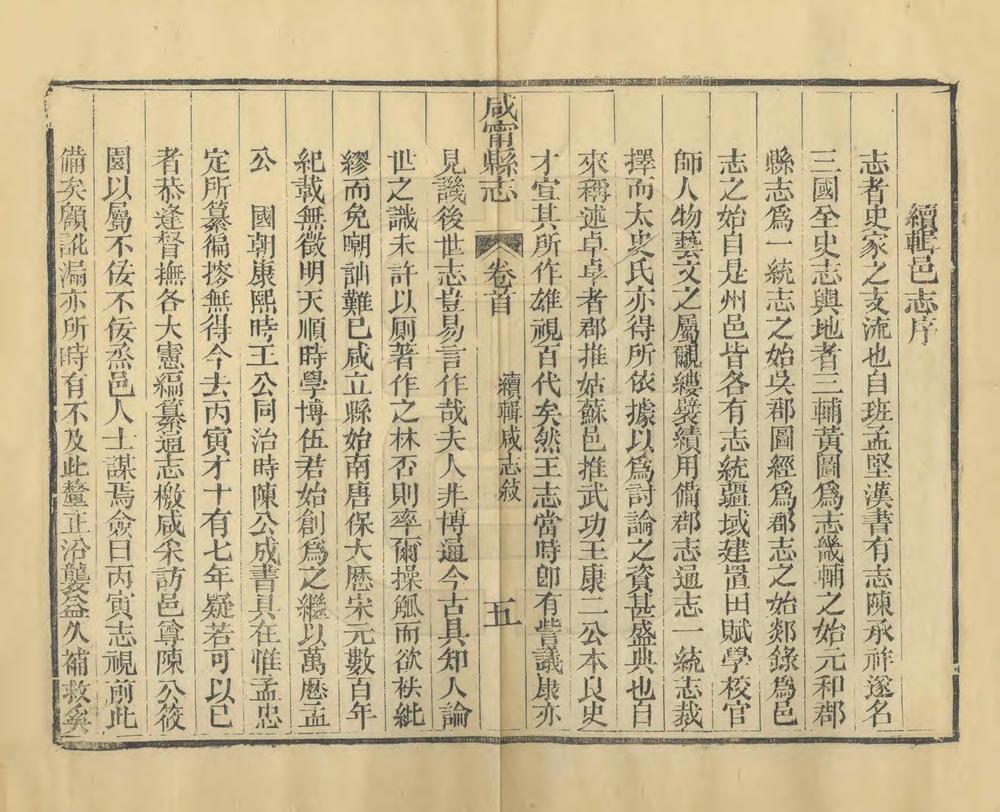 續輯邑志序
志者史家之支流也自班孟堅漢書有志陳承祚遂名
三國全史志輿地者三輔黃圖爲志畿輔之始元和郡
縣志爲一統志之始吳郡圖經爲郡志之始剡錄爲邑
志之始自是州邑皆各有志統疆域建置田賦學校官
師人物藝文之屬覼縷襞績用備郡志通志一統志裁
擇而太史氏亦得所依據以爲討論之資甚盛典也自
來稱述卓卓者郡推姑蘇邑推武功王康二公本良史
才宣其所作雄視百代矣然王志當時卽有訾議康亦
咸甯縣志 卷首 續輯咸志敍 五
見譏後世志豈易言作哉夫人非博通今古具知人論
世之識未許以厠著作之林否則率爾操觚而欲袪紕
繆而免嘲訕難已咸立縣始南唐保大歷宋元數百年
紀載無徵明天順時學博伍君始創爲之繼以萬歷孟
公 國朝康熙時王公同治時陳公成書具在惟孟忠
定所纂徧搜無得今去丙寅才十有七年疑若可以已
者恭逢督撫各大憲編纂通志檄咸采訪邑尊陳公筱
園以屬不佞不佞烝邑人士謀焉僉曰丙寅志視前此
備矣顧訛漏亦所時有不及此釐正沿襲益久補救奚